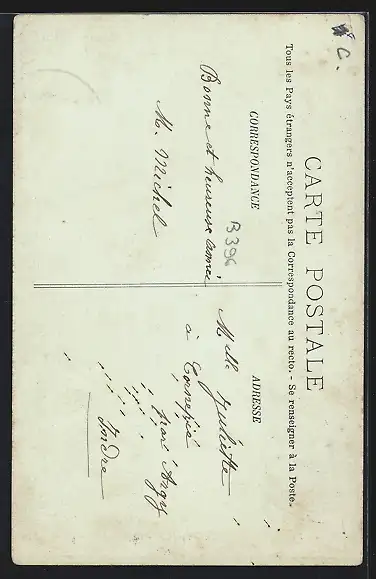 C.
CARTE POSTALE
Tous les Pays étrangers n'acceptent pas la Correspondance au recto. - Se renseigner à la Poste.
CORRESPONDANCE
B396
Bonne et heureuse année
M. Michel
ADRESSE
Melle Juliette
à
par Argy
Indre